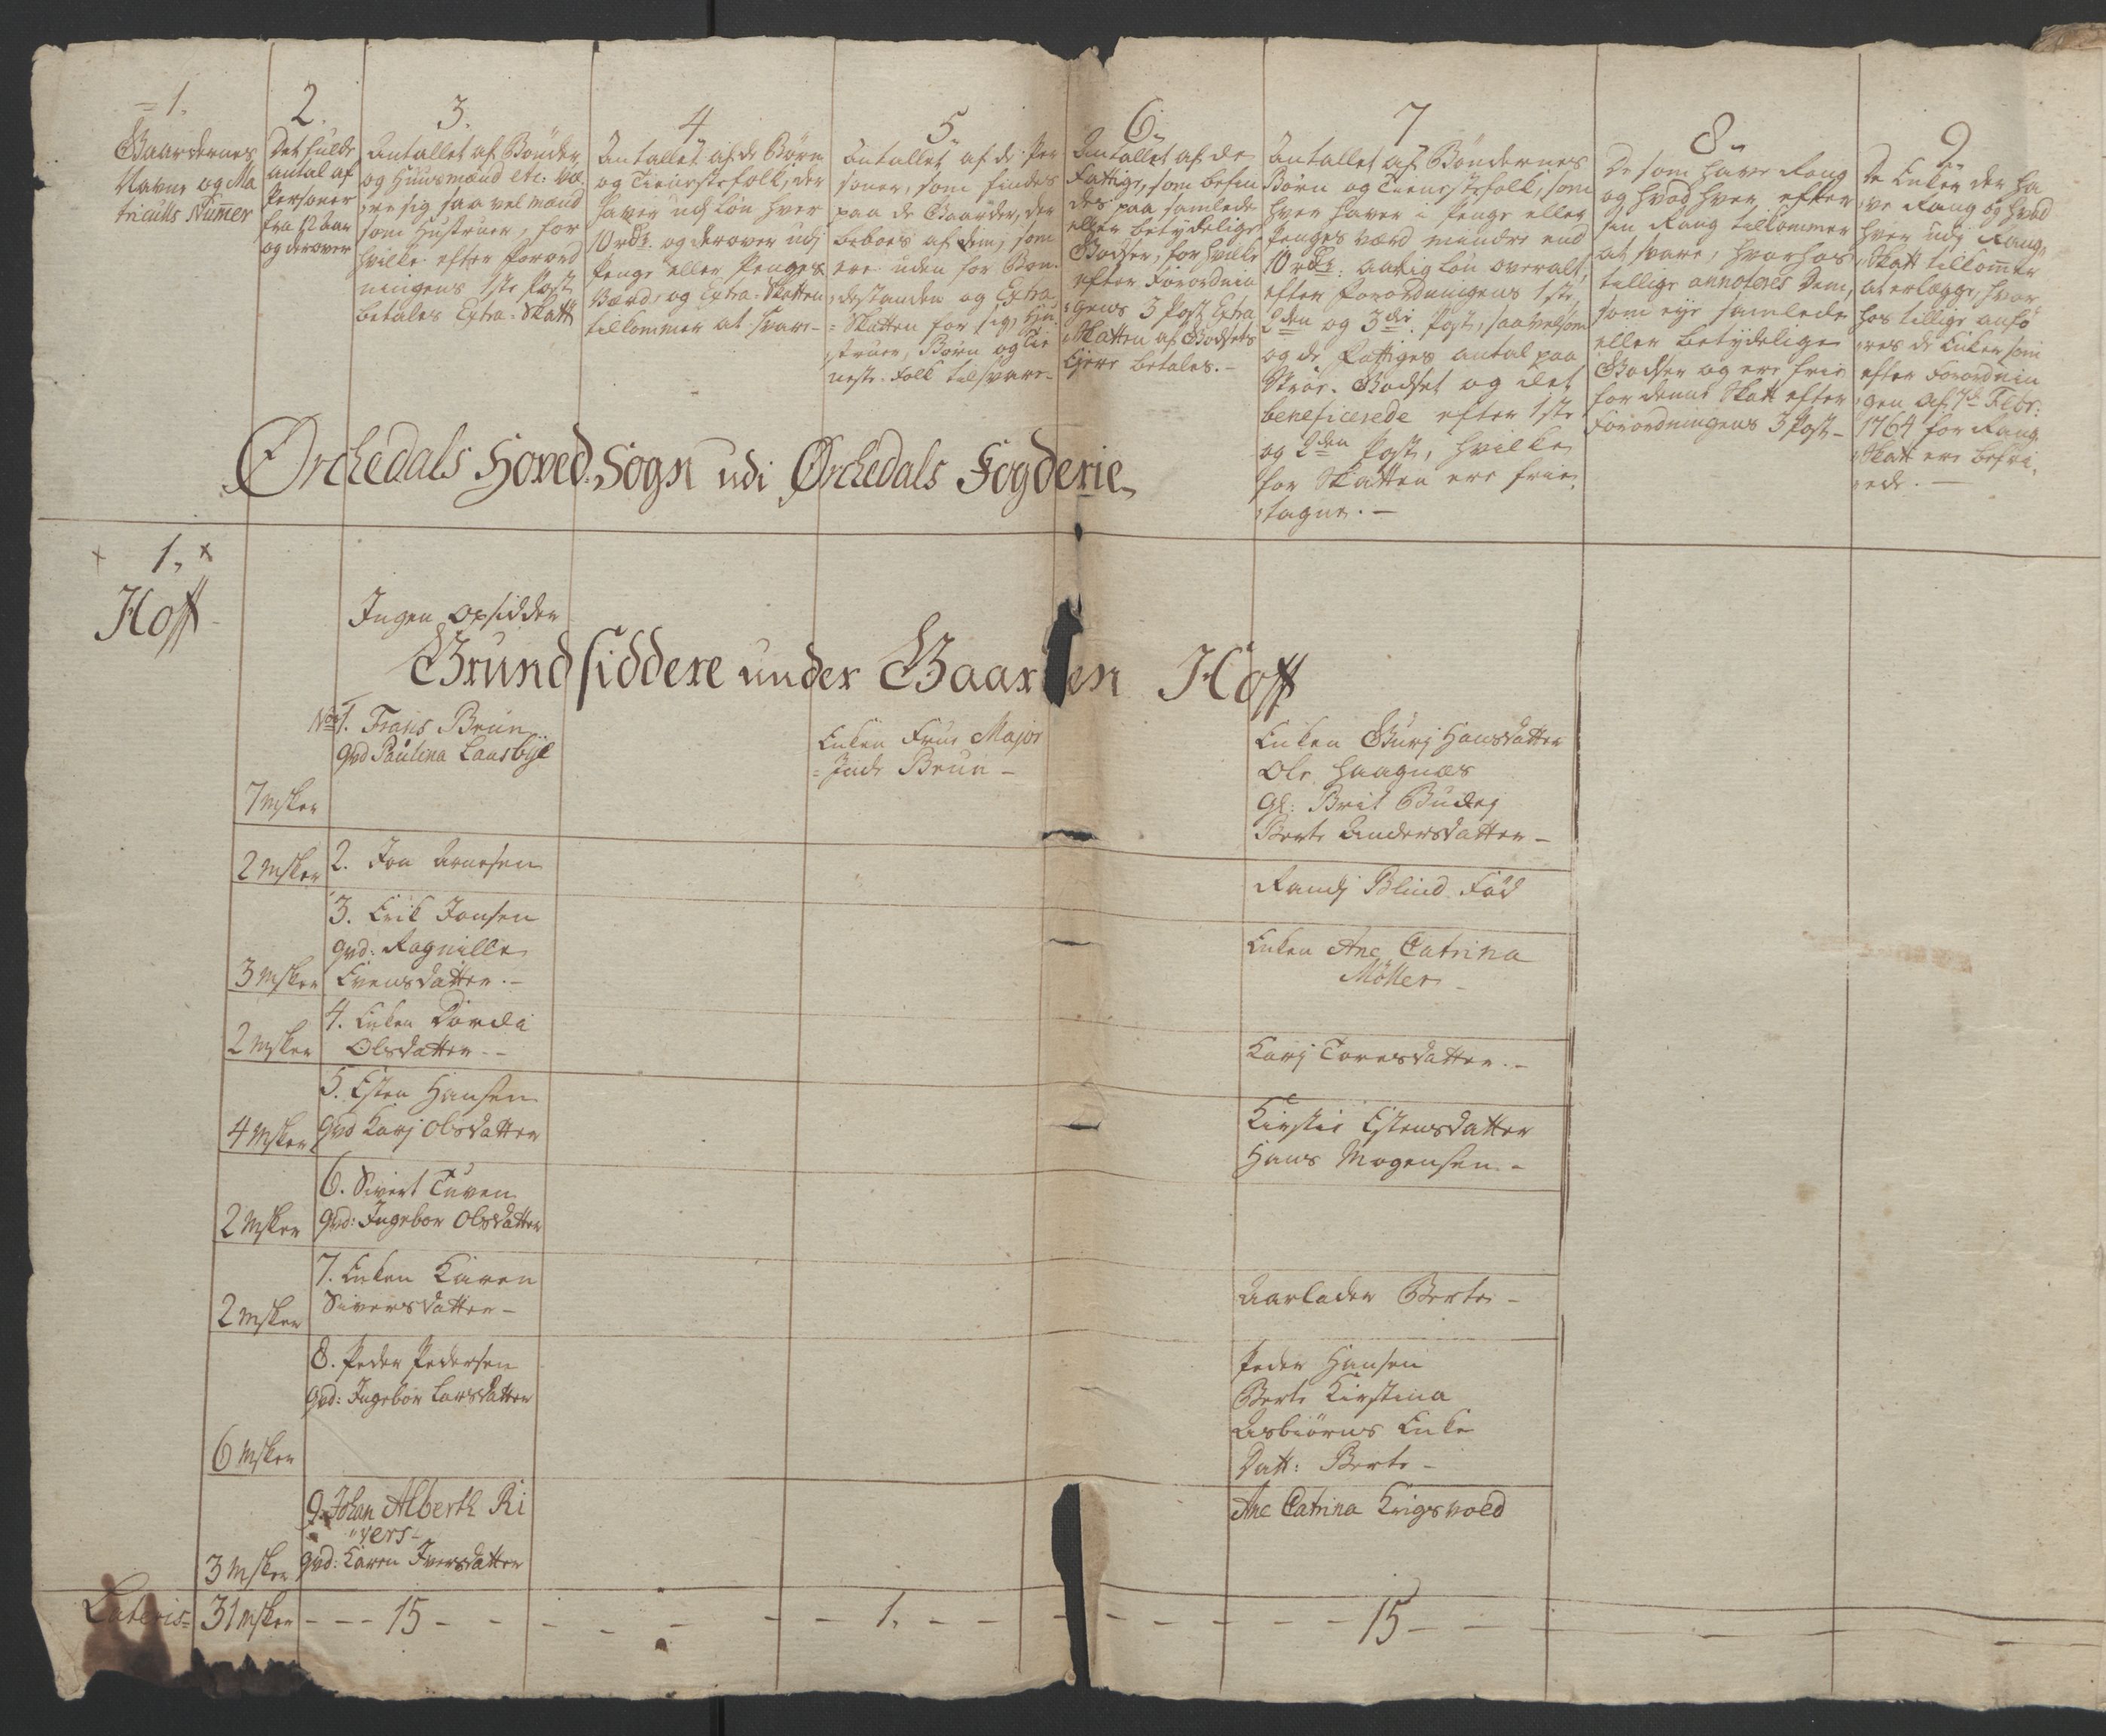 1.
Gaardernes
Navne og Ma
triculs Nummer
2.
Det fulde
Antal af
Personer
fra 12 Aar
og derover
3.
Antallet af Bönder
og Huusmænd etc: væ
re sig saa vel mænd
som Hustruer, for
hvilke efter Forord
ningens 1ste Post
betales Extra-Skatt
4
Antallet af de Börn
og Tienestefolk, der
haver udj Lön hver
10 rdr. og derover udj
Penge eller Penges
Værd, og Extra-Skatten
tilkommer at svare-
5.
Antallet af de Per
soner, som findes
paa de Gaarder, der
beboes af dem, som
ere uden for Bon-
destanden og Extra
Skatten for sig, Hu-
struer, Börn og Tie
neste-Folk tilsvare-
6.
Antallet af de
Fattige, som befin
des paa samlede
eller betydelige
Godser, for hvilke
efter Forordnin
gens 3 Post Extra
Skatten af Godsets
Ejere betales.-
7
Antallet af Böndernes
Börn og Tienestefolk, som
hver haver i Penge eller
Penges værd mindre end
10 rdr: aarlig Lön overalt,
efter Forordningens 1ste,
2den og 3die Post, saavelsom
og de Fattiges antal paa
Ströe-Godset og det
beneficerede efter 1ste
og 2den Post, hvilke
for Skatten ere frie
tagne.-
8.
De som have Rang
og hvad hver, efter
sin Rang tilkommer
at svare, hvorhos
tillige annoteres Dem,
som eye samlede
eller betydelige
Godser og ere frie
for denne Skatt efter
Forordningens 3 Post-
9.
De Enker der ha
ve Rang og hvad
hver udj Rang-
Skatt tilkommer
at erlægge, hvor
hos tillige anfö
res de Enker som
efter Forordnin
gen af 7de Febr:
1764 for Rang
Skatt ere befri-
ede.-
Örchedals Hoved-Sogn udi Örchedals Fogderie
1.
Hoff
Ingen Opsidder
Grundsiddere under Gaarden Hoff
7 msker
No 1. Frans Brun
qvd Paulina Lansbye
Enken Frue Major
Inde Brun-
Enken Gurj Hansdatter
Ole Haagnæs
Gl: Brit Budej
Berte Andersdatter-
2 msker
2. Jon Arnesen
Randj Blind Föd
3 msker
3. Erik Jonsen
qvd: Ragnille
Evensdatter.-
Enken Ane Catrina
Möller-
2 msker
4. Enken Dordi
Olsdatter.-
Karj Toresdatter.-
4 msker
5. Esten Hansen
qvd Karj Olsdatter
Kirstie Estensdatter
Hans Mogensen.-
2 msker
6. Sivert Tuven
qvd: Ingebor Olsdatter
2 msker
7. Enken Karen
Siversdatter-
Aarladen Berte-
6 msker
8. Peder Pedersen
qvd: Ingebor Larsdatter
Peder Hansen
Berte Kirstina
Asbiörns Enke
Datt: Berte-
3 msker
9. Johan Alberth Ri
yers-
qvd: Karen Iversdatter
Ane Catrina Krigsvold
Lateris= 31 msker - - - 15 - - - - - - 1. - - - - - - 15 - - - - -